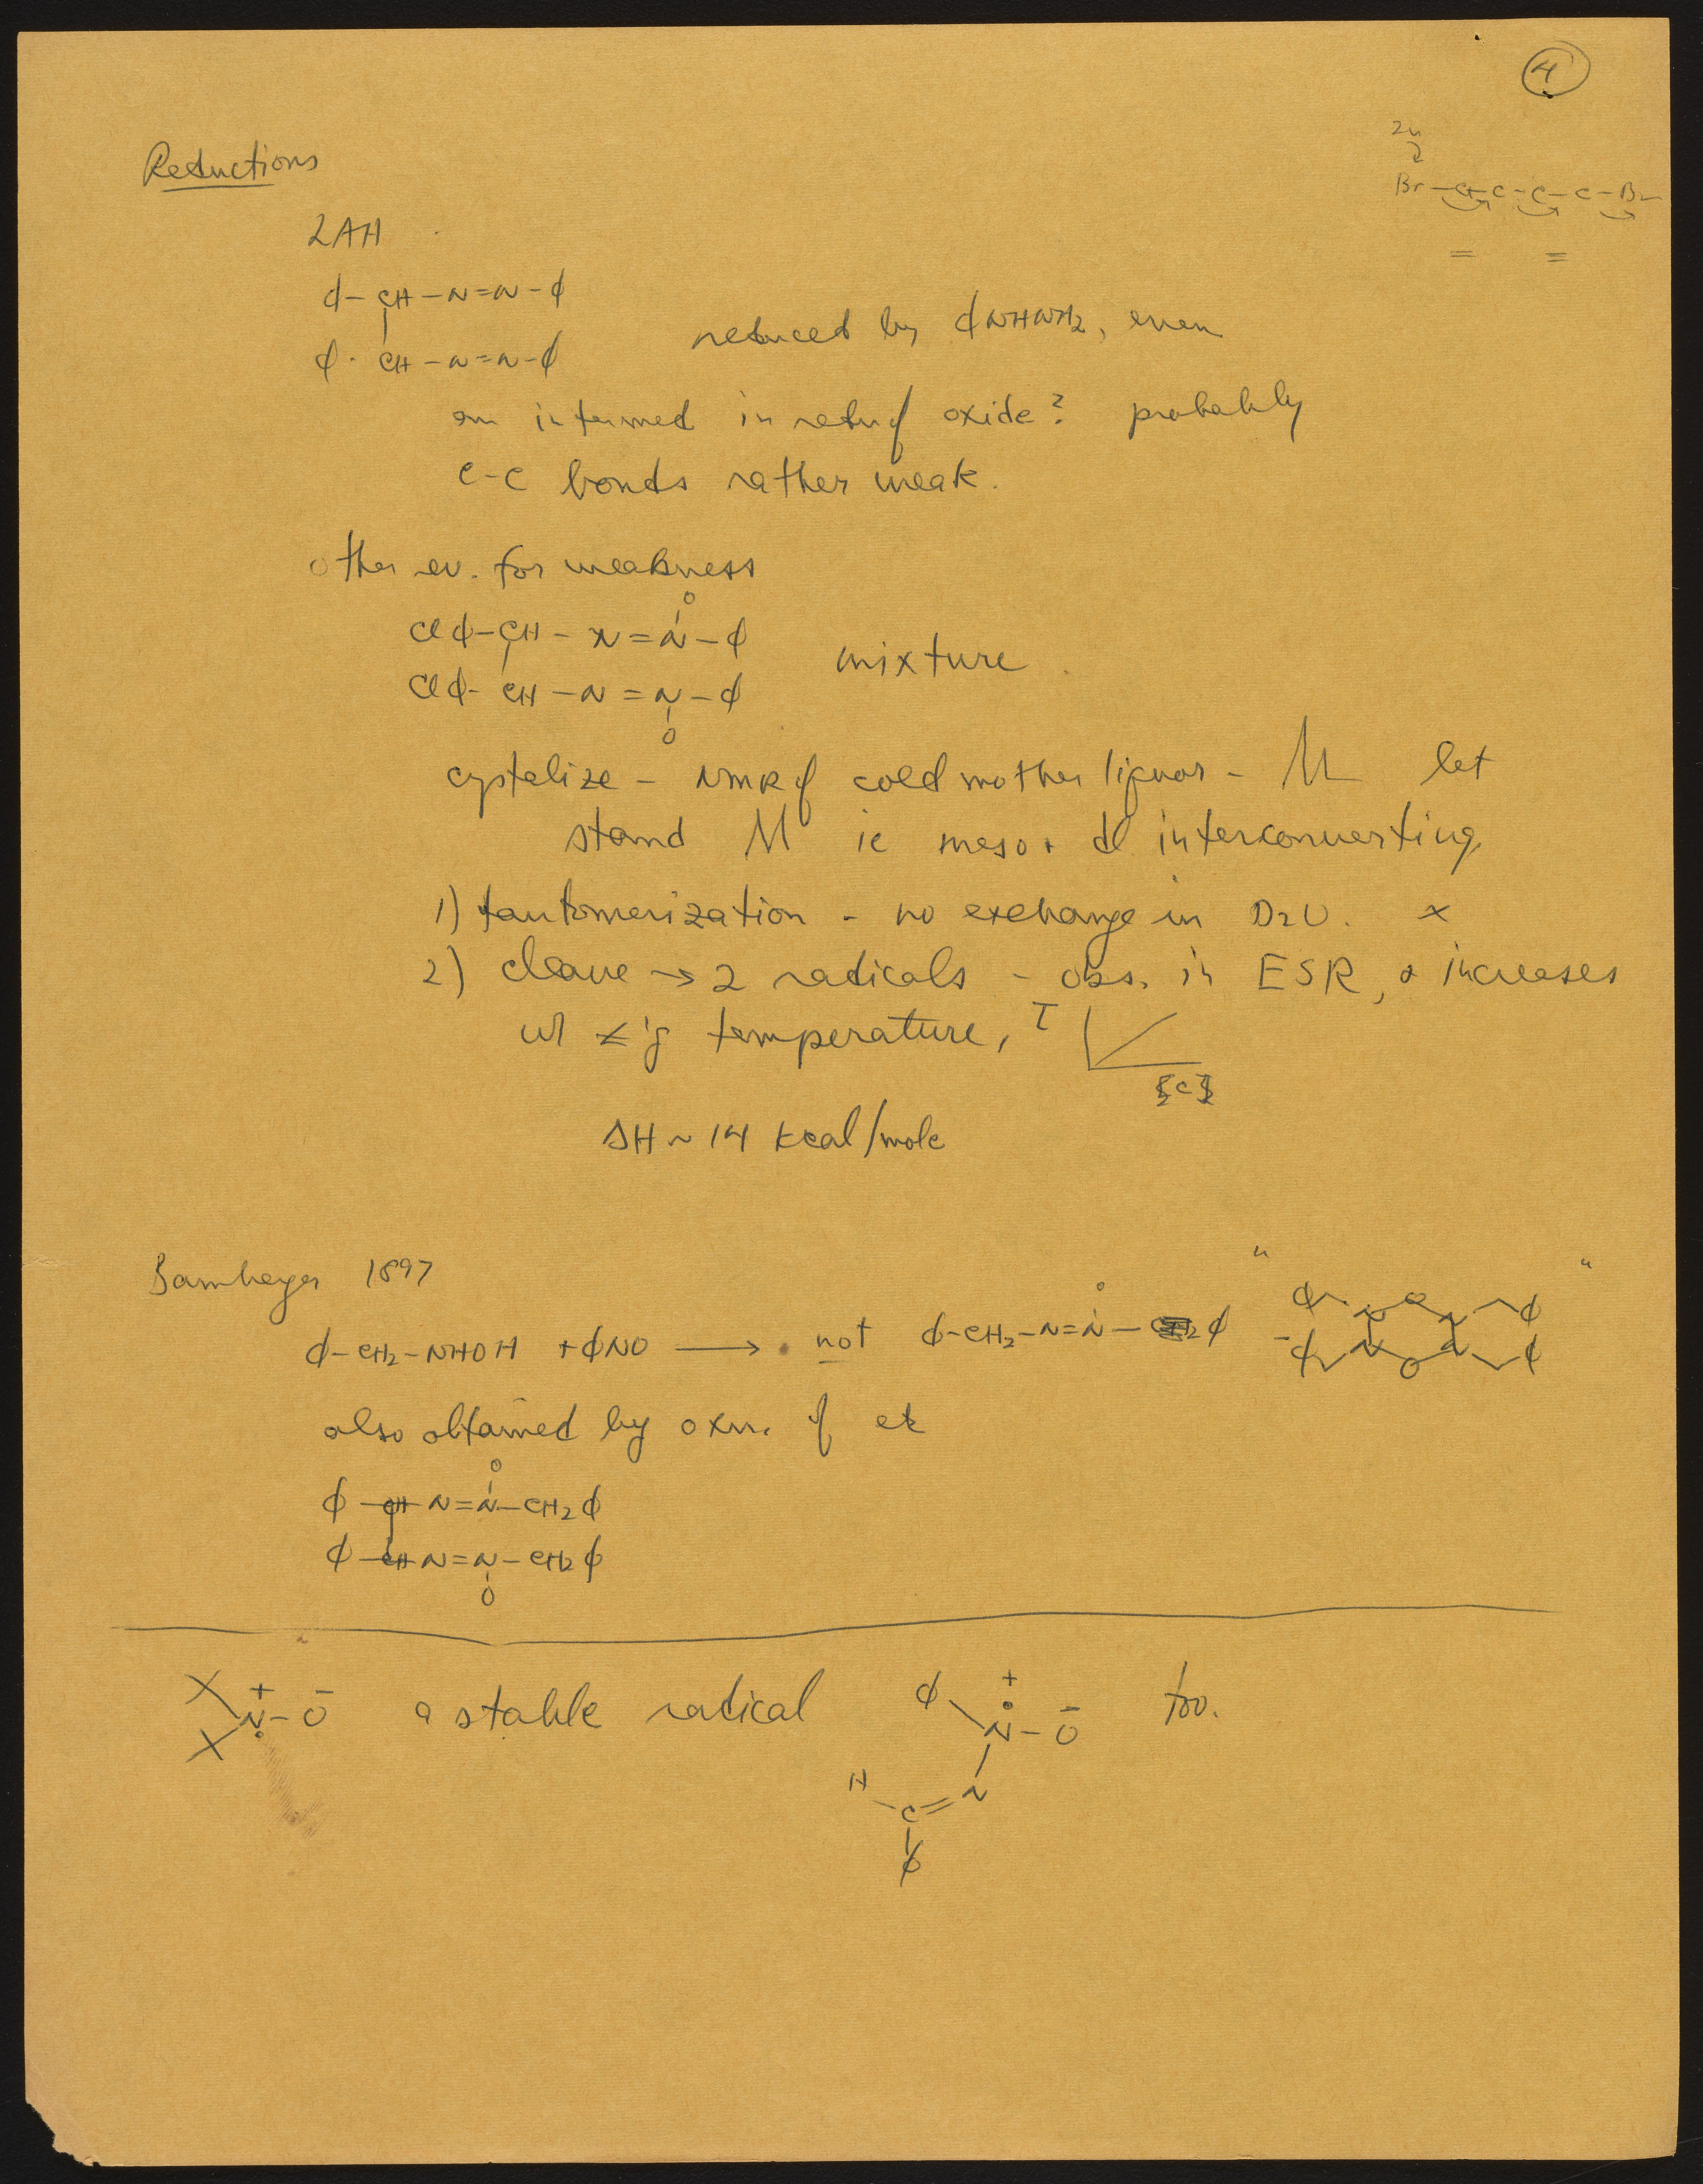 4
Zn
Br-C-C-C-C-Br
= =
Reductions
LAH
φ-CH-N=N-φ
φ-CH-N=N-φ
reduced by φNHNH2, even
an intermed in redn of oxide? probably
C-C bonds rather weak.
other ev. for weakness
O
Clφ-CH-N=N-φ
Clφ-CH-N=N-φ
O
mixture
cystalize - NMR of cold mother liquor - let
stand ie meso + dl interconverting
1) tautomerization - no exchange in D2O. x
2) cleave → 2 radicals - obs. in ESR, & increases
w/ temperature, I
[C]½
ΔH ~ 14 kcal/mole
Bamberger 1897
φ-CH2-NHOH + φNO ⟶ not φ-CH2-N=N-φ
O
" "
φ N O N φ
φ N O N φ
also obtained by oxn. of
O
φ-CH-N=N-CH2φ
φ-CH-N=N-CH2φ
O
+ -
N-O a stable radical
φ + -
N-O too.
H
C=N
φ